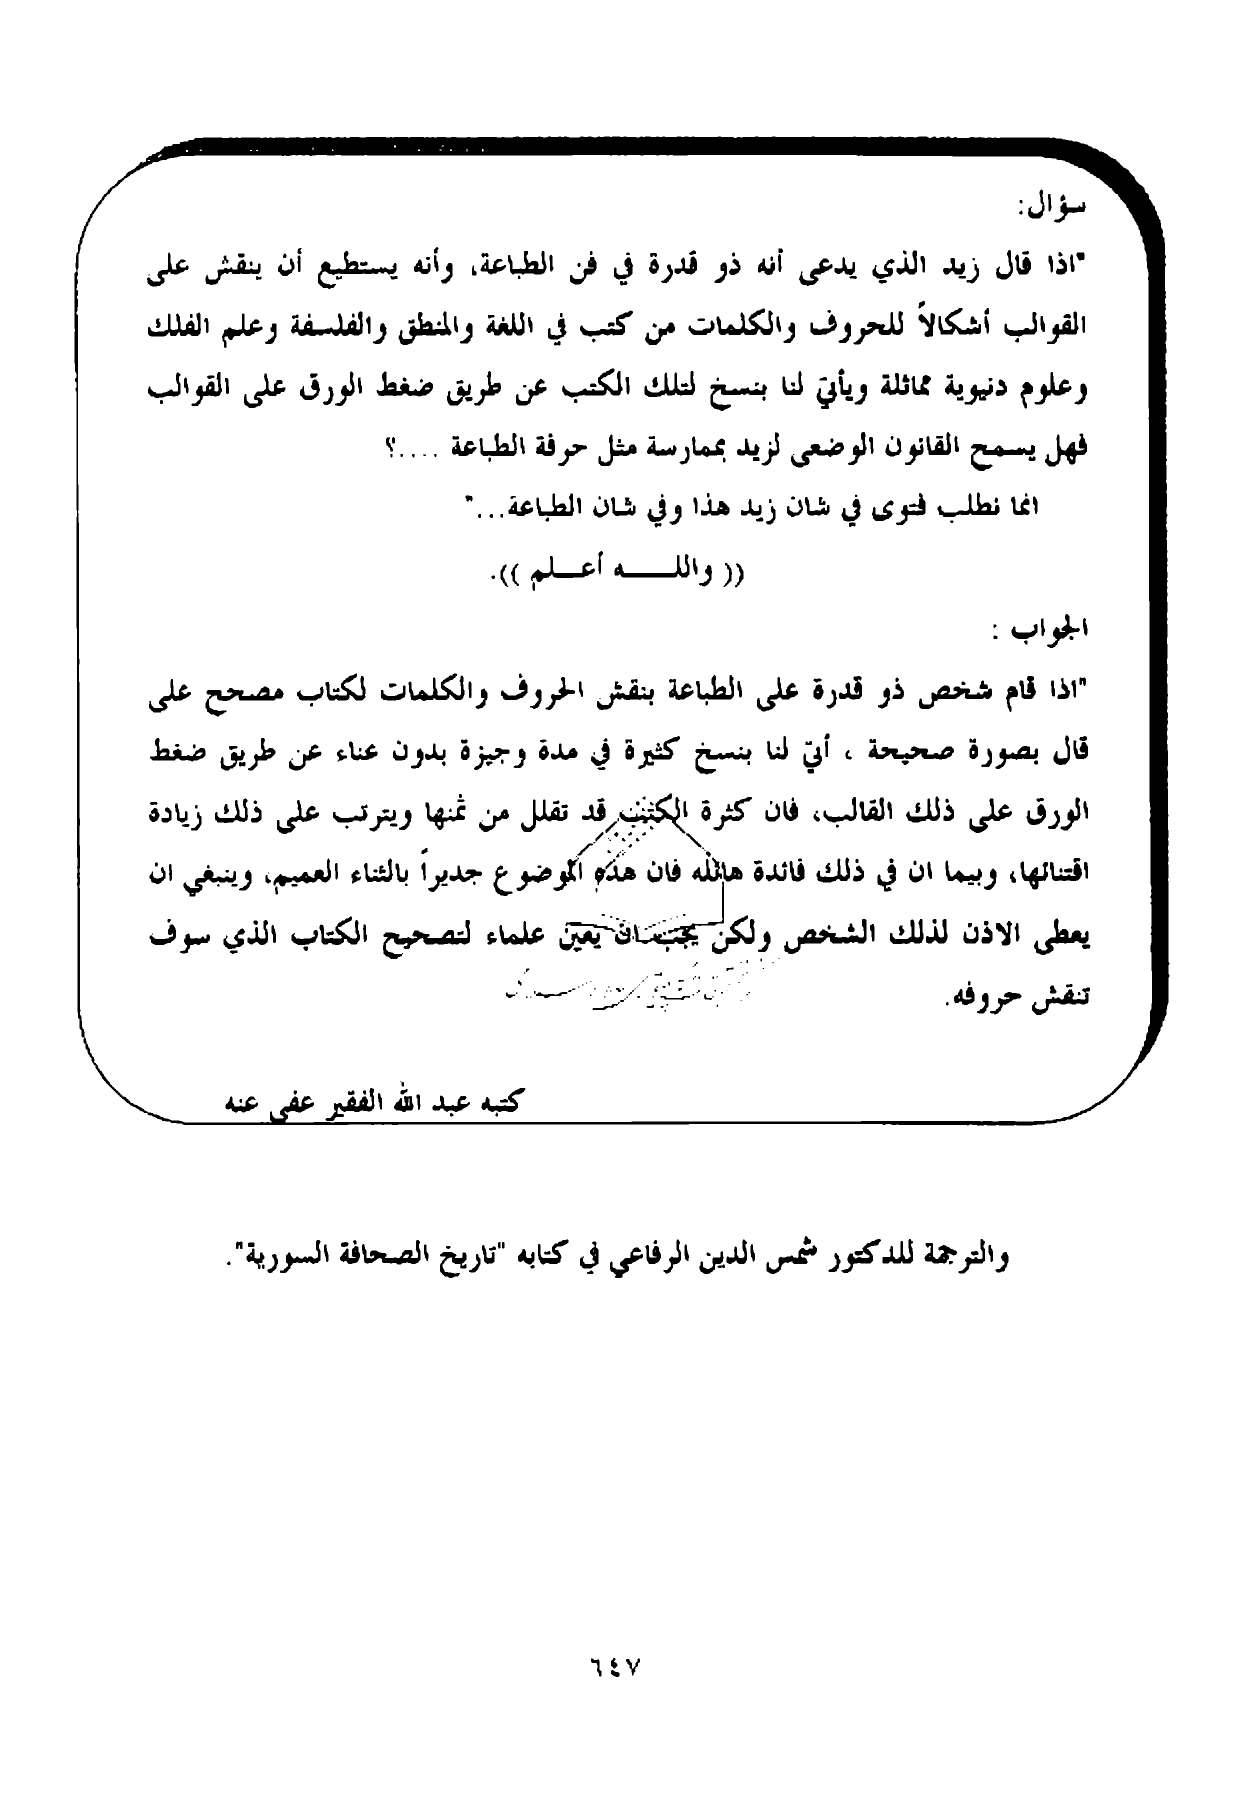 سؤال:
"اذا قال زيد الذي يدعى أنه ذو قدرة في فن الطباعة، وأنه يستطيع أن ينقش على
القوالب أشكالاً للحروف والكلمات من كتب في اللغة والمنطق والفلسفة وعلم الفلك
وعلوم دنيوية مماثلة ويأتي لنا بنسخ لتلك الكتب عن طريق ضغط الورق على القوالب
فهل يسمح القانون الوضعي لزيد بممارسة مثل حرفة الطباعة ....؟
انما نطلب فتوى في شان زيد هذا وفي شان الطباعة..."
(( واللـــــه أعـــلم )).
الجواب :
"اذا قام شخص ذو قدرة على الطباعة بنقش الحروف والكلمات لكتاب مصحح على
قال بصورة صحيحة ، أتي لنا بنسخ كثيرة في مدة وجيزة بدون عناء عن طريق ضغط
الورق على ذلك القالب، فان كثرة الكتب قد تقلل من ثمنها ويترتب على ذلك زيادة
اقتنائها، وبيما ان في ذلك فائدة هائله فان هذه الموضوع جديراً بالثناء العميم، وينبغي ان
يعطى الاذن لذلك الشخص ولكن يجب ان يعين علماء لتصحيح الكتاب الذي سوف
تنقش حروفه.
كتبه عبد الله الفقير عفى عنه
والترجمة للدكتور شمس الدين الرفاعي في كتابه "تاريخ الصحافة السورية".
٦٤٧